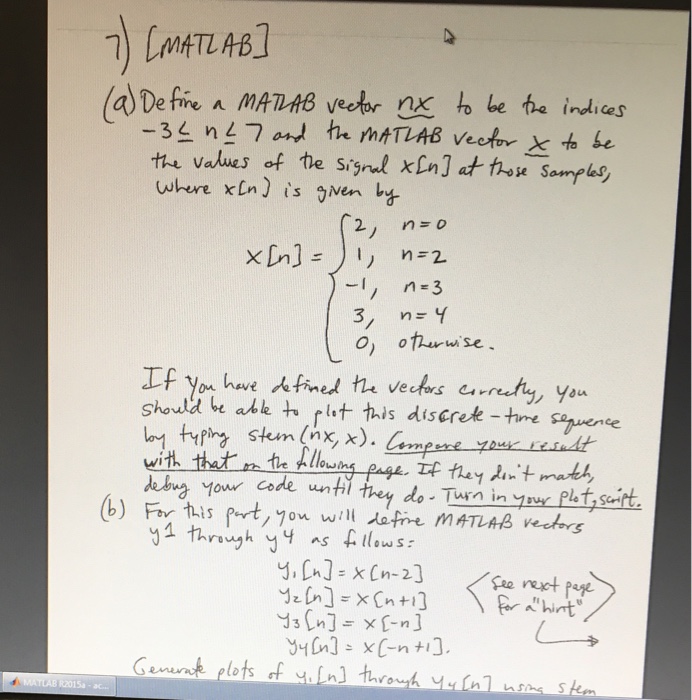 7) [MATLAB]
(a) Define a MATLAB vector nx to be the indices
-3 ≤ n ≤ 7 and the MATLAB vector x to be
the values of the signal x[n] at those samples,
where x[n] is given by
x[n] = { 2, n=0
1, n=2
-1, n=3
3, n=4
0, otherwise.
If you have defined the vectors correctly, you
should be able to plot this discrete-time sequence
by typing stem(nx, x). Compare your result
with that on the following page. If they don't match,
debug your code until they do. Turn in your plot, script.
(b) For this part, you will define MATLAB vectors
y1 through y4 as follows:
y₁[n] = x[n-2]
y₂[n] = x[n+1]
y₃[n] = x[-n]
y₄[n] = x[-n+1].
See next page
for a "hint"
Generate plots of y₁[n] through y₄[n] using stem
MATLAB R2015a - ac...